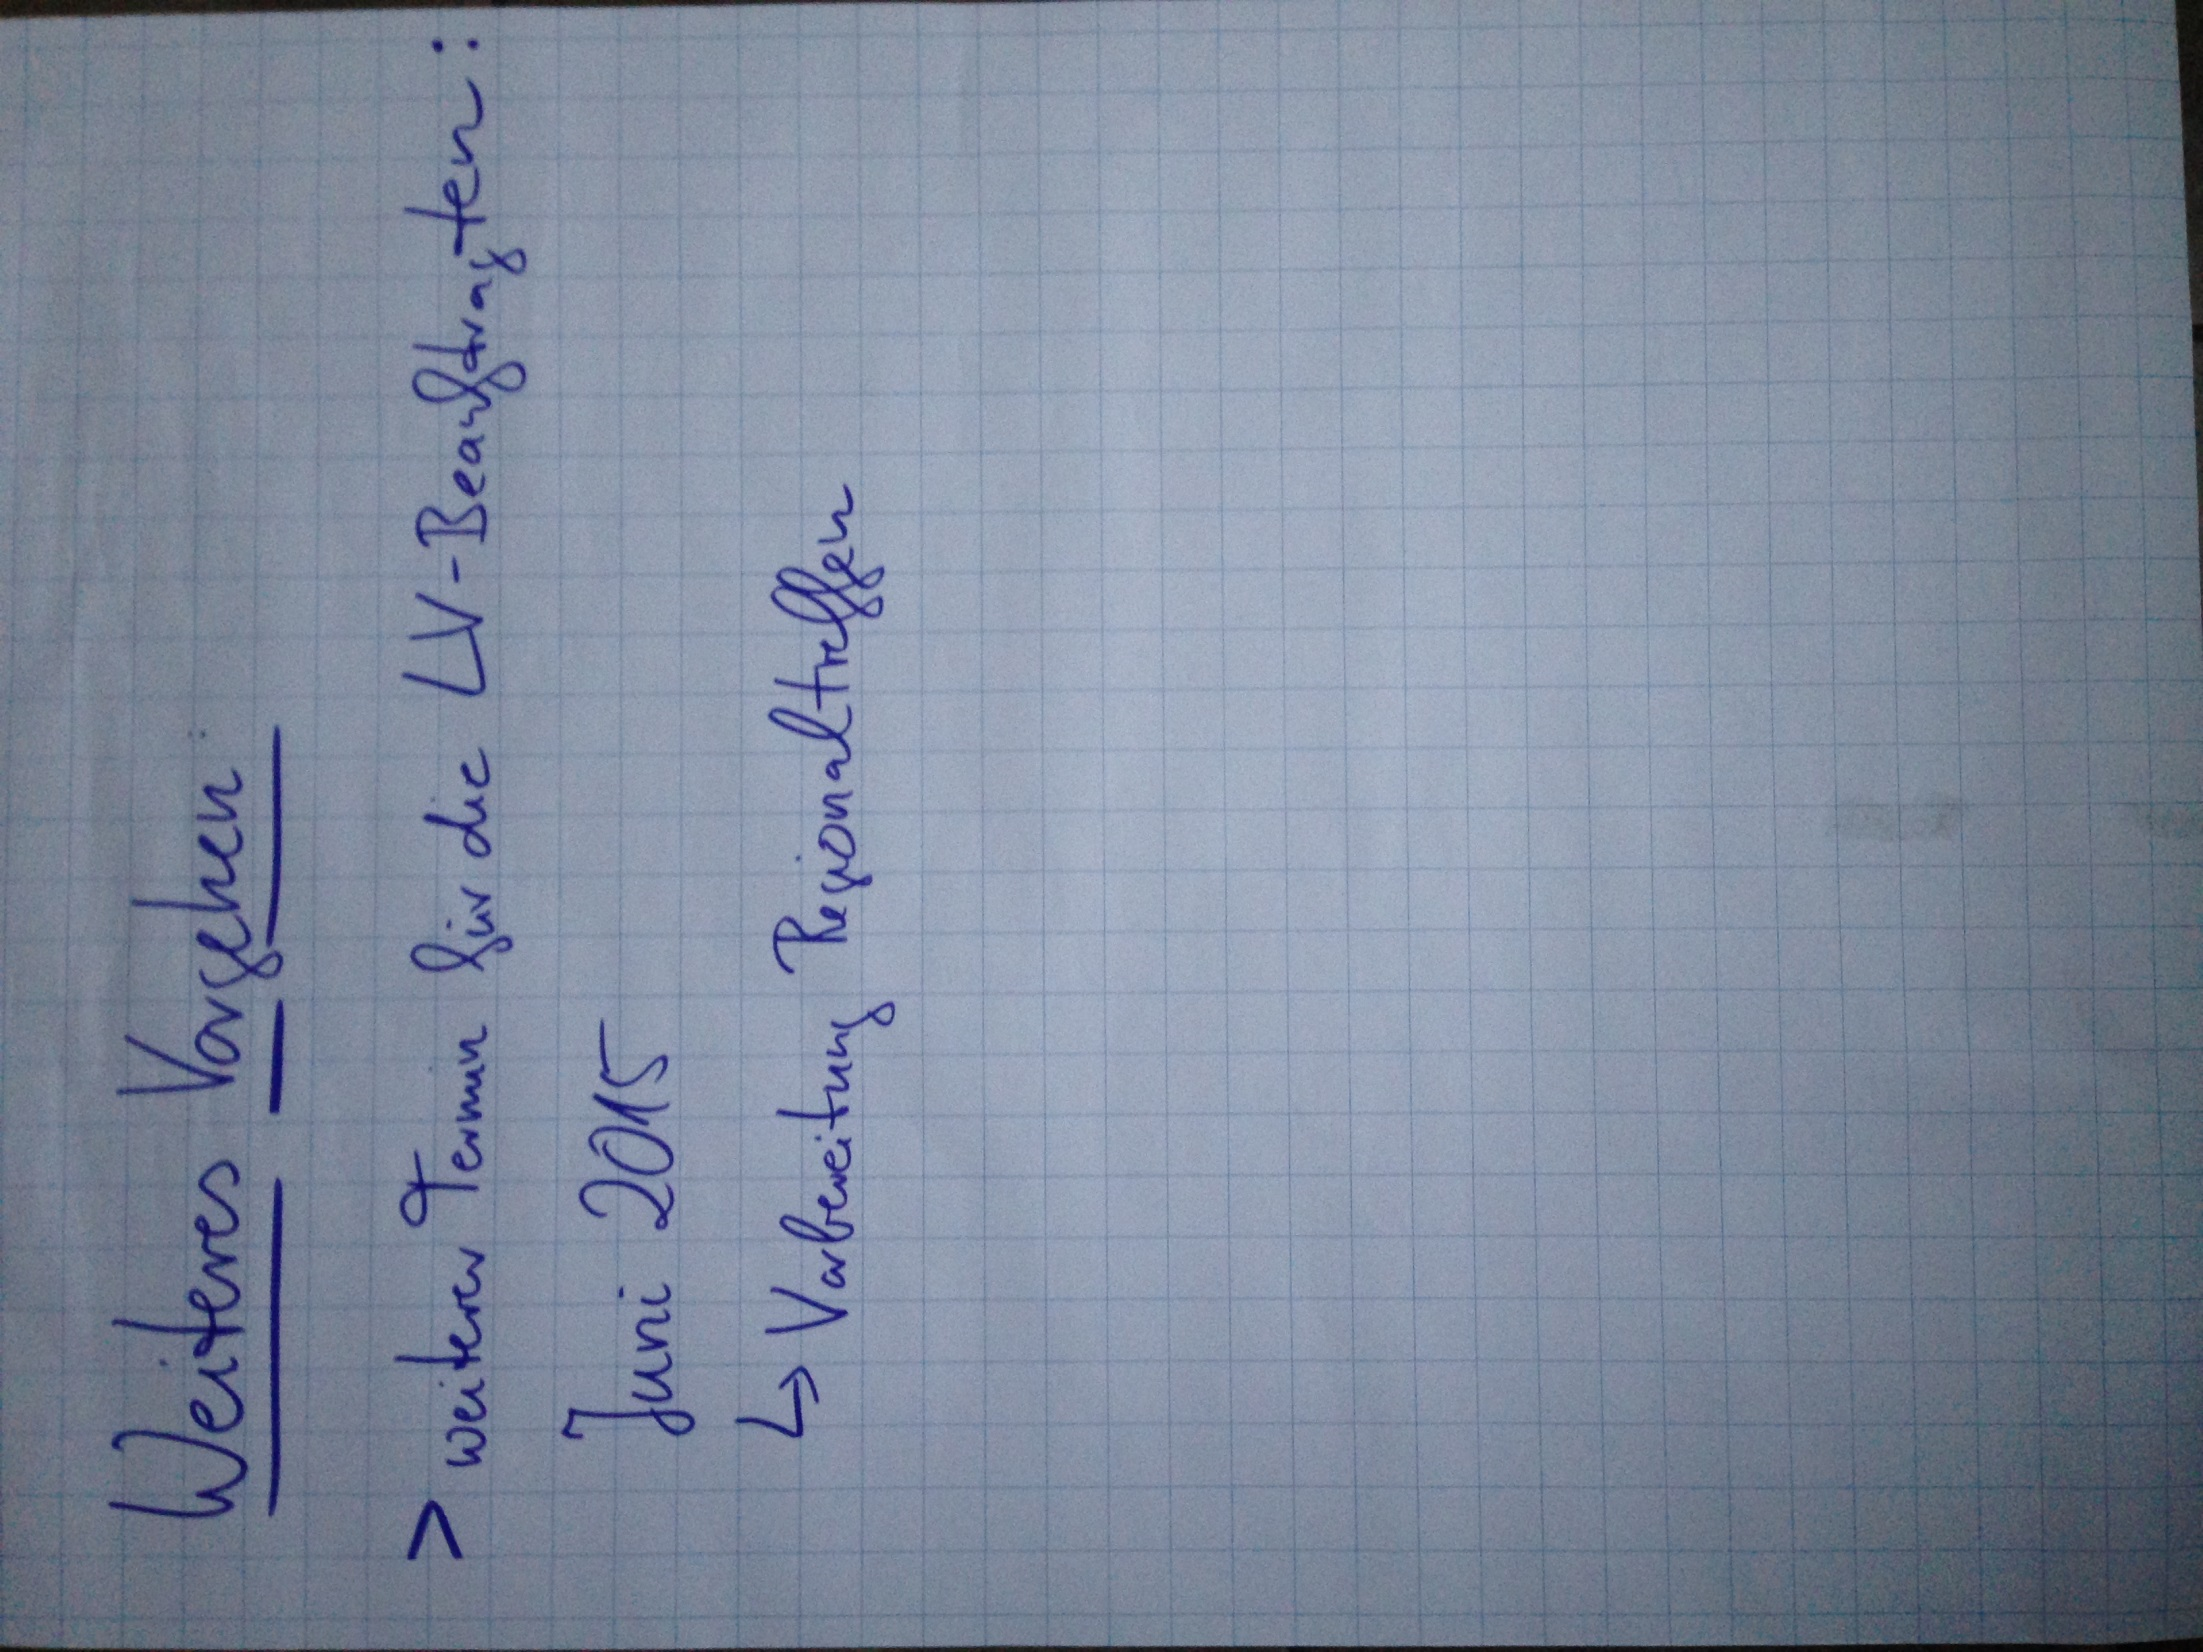 Weiteres Vorgehen:
> weiterer Termin für die LV-Beauftragten:
Juni 2015
↳ Vorbereitung Regionaltreffen